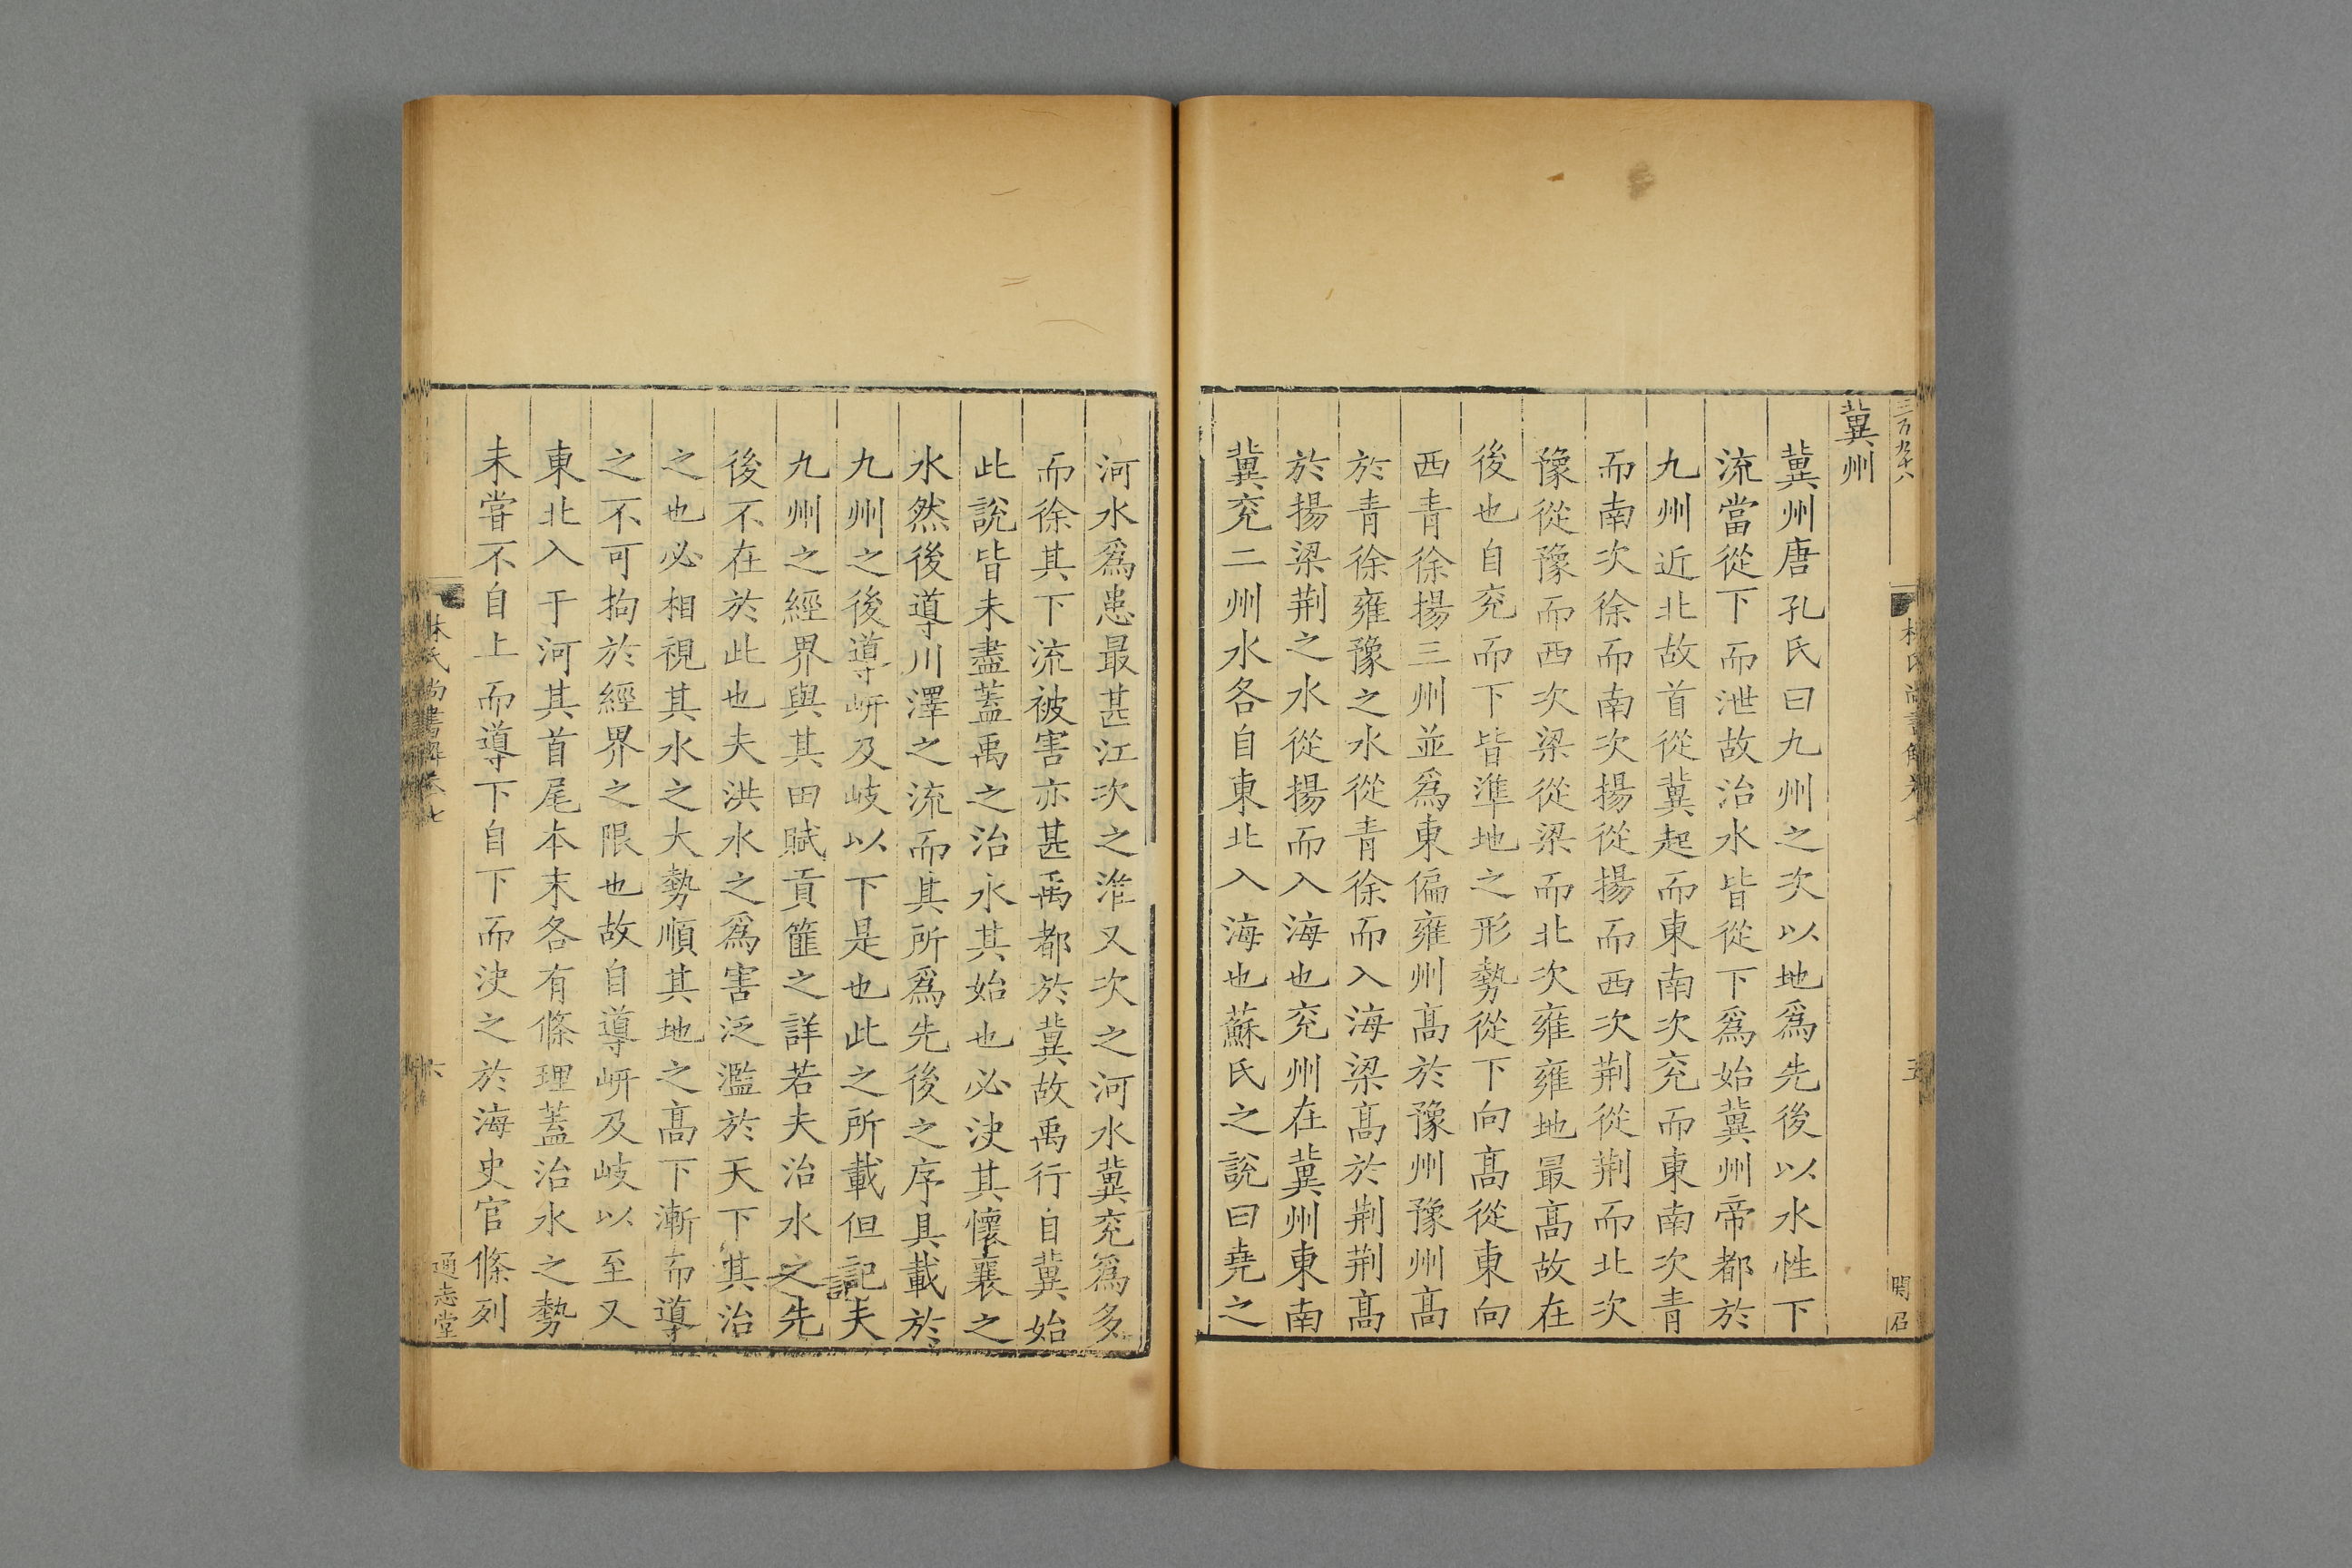 冀州
冀州唐孔氏曰九州之次以地爲先後以水性下
流當從下而泄故治水皆從下爲始冀州帝都於
九州近北故首從冀起而東南次兖而東南次青
而南次徐而南次揚從揚而西次荆從荆而北次
豫從豫而西次梁從梁而北次雍雍地最髙故在
後也自兖而下皆準地之形勢從下向髙從東向
西青徐揚三州並爲東偏雍州髙於豫州豫州髙
於青徐雍豫之水從青徐而入海梁髙於荆荆髙
於揚梁荆之水從揚而入海也兖州在冀州東南
冀兖二州水各自東北入海也蘇氏之說曰堯之
五
河水爲患最甚江次之淮又次之河水冀兖爲多
而徐其下流被害亦甚禹都於冀故禹行自冀始
此說皆未盡蓋禹之治水其始也必決其懷襄之
水然後導川澤之流而其所爲先後之序具載於
九州之後導岍及岐以下是也此之所載但記夫
九州之經界與其田賦貢篚之詳若夫治水之先
後不在於此也夫洪水之爲害泛濫於天下其治
之也必相視其水之大勢順其地之髙下漸而導
之不可拘於經界之限也故自導岍及岐以至又
東北入于河其首尾本末各有條理蓋治水之勢
未嘗不自上而導下自下而決之於海史官條列
林氏尚書解卷七
六
通志堂